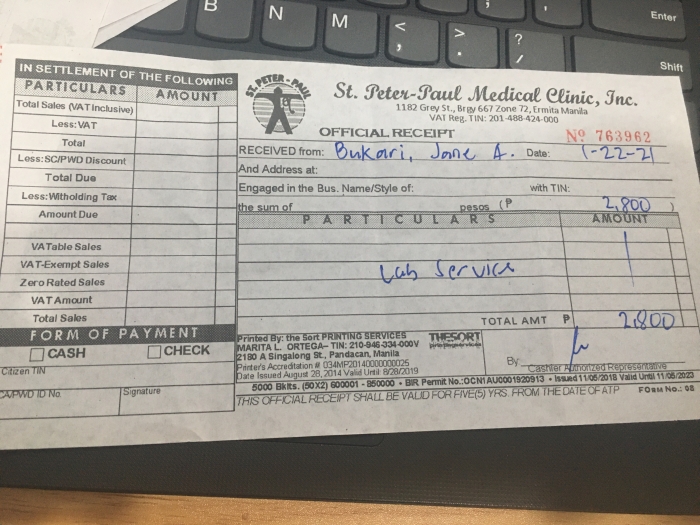 B N M < , > . ; ? / Enter
Shift
IN SETTLEMENT OF THE FOLLOWING
PARTICULARS AMOUNT
Total Sales (VAT Inclusive)
Less:VAT
Total
Less:SC/PWD Discount
Total Due
Less:Witholding Tax
Amount Due
VATable Sales
VAT-Exempt Sales
Zero Rated Sales
VAT Amount
Total Sales
FORM OF PAYMENT
CASH CHECK
Citizen TIN
CA/PWD ID No. Signature
ST. PETER-PAUL
St. Peter-Paul Medical Clinic, Inc.
1182 Grey St., Brgy 667 Zone 72, Ermita Manila
VAT Reg. TIN: 201-488-424-000
OFFICIAL RECEIPT Nº 763962
RECEIVED from: Bukari, Jane A. Date: 1-22-21
And Address at:
Engaged in the Bus. Name/Style of: with TIN:
the sum of pesos (₱ 2,800 )
PARTICULARS AMOUNT
Lab Service
TOTAL AMT ₱ 2,800
Printed By: the Sort PRINTING SERVICES THESORT
MARITA L. ORTEGA- TIN: 210-946-334-000V
2180 A Singalong St., Pandacan, Manila
Printer's Accreditation # 034MP20140000000025
Date Issued August 28, 2014 Valid Until 8/28/2019
By: Cashier Authorized Representative
5000 Bklts. (50X2) 600001 - 850000 • BIR Permit No.:OCN1AU0001920913 • Issued 11/05/2018 Valid Until 11/05/2023
THIS OFFICIAL RECEIPT SHALL BE VALID FOR FIVE(5) YRS. FROM THE DATE OF ATP FORM No.: 08